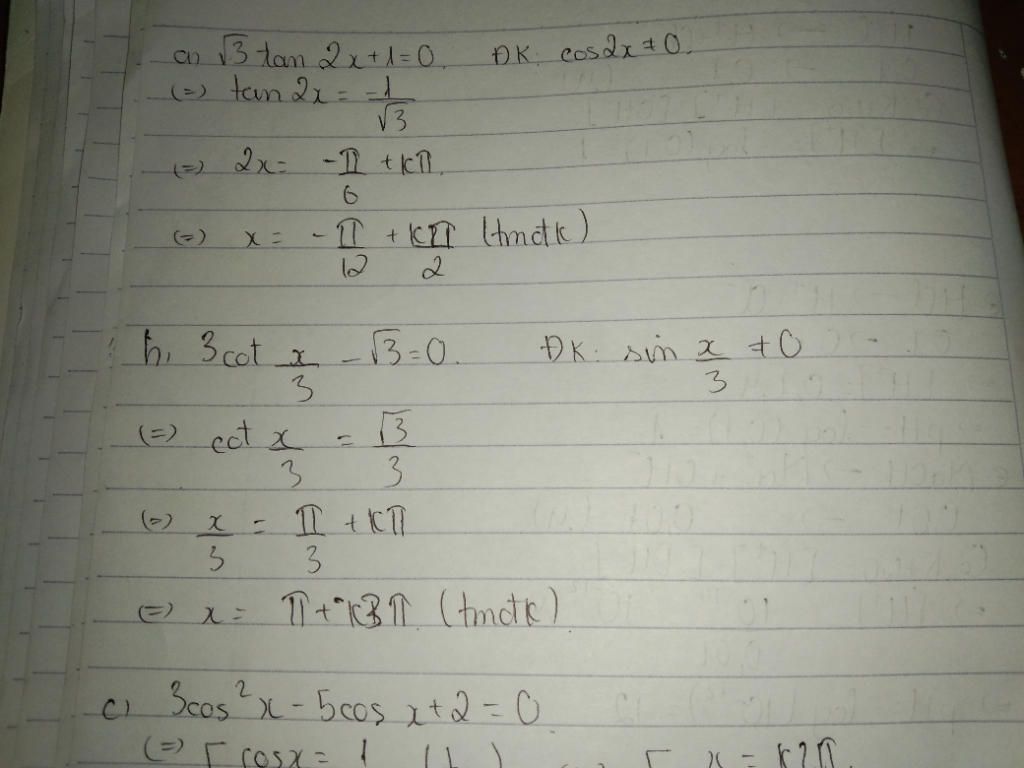 a) √3 tan 2x + 1 = 0. ĐK: cos2x ≠ 0.
(=) tan 2x = -1/√3
(=) 2x = -π/6 + kπ.
(=) x = -π/12 + kπ/2 (tmđk)
b, 3cot x/3 - √3 = 0. ĐK: sin x/3 ≠ 0
(=) cot x/3 = √3/3
(=) x/3 = π/3 + kπ
(=) x = π + k3π (tmđk)
c) 3cos²x - 5cos x + 2 = 0
(=) [ cosx = 1 [ x = k2π.